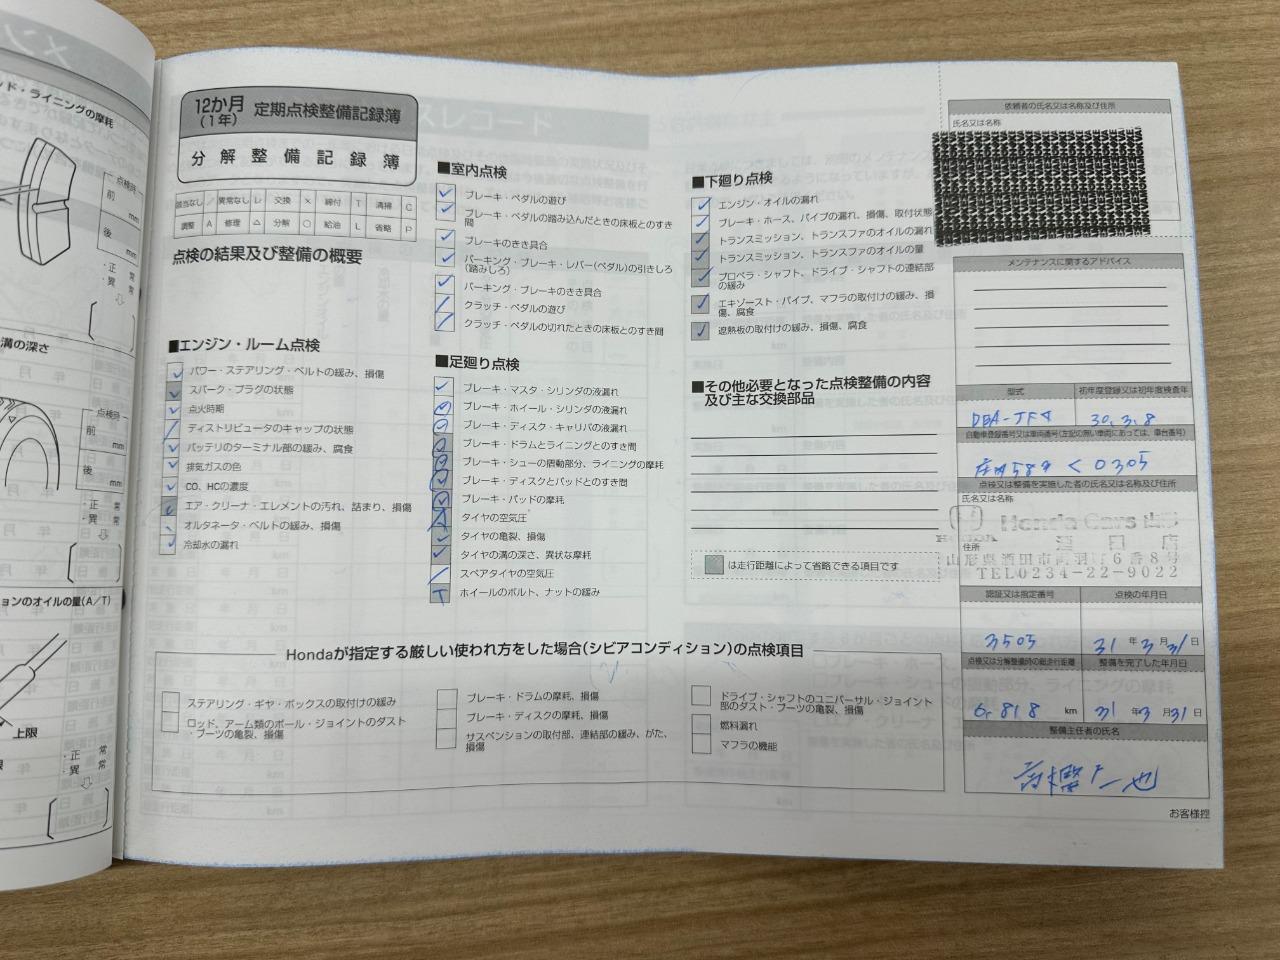 ド・ライニングの摩耗
点検時
前
mm
後
mm
・正 常
・異 常
溝の深さ
点検時
前
mm
後
mm
・正 常
・異 常
ションのオイルの量(A/T)
上限
・正 常
・異 常
12か月
(1年)
定期点検整備記録簿
分解整備記録簿
該当なし ／ 異常なし レ 交換 × 締付 T 清掃 C
調整 A 修理 △ 分解 ○ 給油 L 省略 P
点検の結果及び整備の概要
■エンジン・ルーム点検
パワー・ステアリング・ベルトの緩み、損傷
スパーク・プラグの状態
点火時期
ディストリビュータのキャップの状態
バッテリのターミナル部の緩み、腐食
排気ガスの色
CO、HCの濃度
エア・クリーナ・エレメントの汚れ、詰まり、損傷
オルタネータ・ベルトの緩み、損傷
冷却水の漏れ
■室内点検
ブレーキ・ペダルの遊び
ブレーキ・ペダルの踏み込んだときの床板とのすき
間
ブレーキのきき具合
パーキング・ブレーキ・レバー(ペダル)の引きしろ
(踏みしろ)
パーキング・ブレーキのきき具合
クラッチ・ペダルの遊び
クラッチ・ペダルの切れたときの床板とのすき間
■足廻り点検
ブレーキ・マスタ・シリンダの液漏れ
ブレーキ・ホイール・シリンダの液漏れ
ブレーキ・ディスク・キャリパの液漏れ
ブレーキ・ドラムとライニングとのすき間
ブレーキ・シューの摺動部分、ライニングの摩耗
ブレーキ・ディスクとパッドとのすき間
ブレーキ・パッドの摩耗
タイヤの空気圧
タイヤの亀裂、損傷
タイヤの溝の深さ、異状な摩耗
スペアタイヤの空気圧
ホイールのボルト、ナットの緩み
■下廻り点検
エンジン・オイルの漏れ
ブレーキ・ホース、パイプの漏れ、損傷、取付状態
トランスミッション、トランスファのオイルの漏れ
トランスミッション、トランスファのオイルの量
プロペラ・シャフト、ドライブ・シャフトの連結部
の緩み
エキゾースト・パイプ、マフラの取付けの緩み、損
傷、腐食
遮熱板の取付けの緩み、損傷、腐食
■その他必要となった点検整備の内容
及び主な交換部品
は走行距離によって省略できる項目です
Hondaが指定する厳しい使われ方をした場合(シビアコンディション)の点検項目
ステアリング・ギヤ・ボックスの取付けの緩み
ロッド、アーム類のボール・ジョイントのダスト
・ブーツの亀裂、損傷
ブレーキ・ドラムの摩耗、損傷
ブレーキ・ディスクの摩耗、損傷
サスペンションの取付部、連結部の緩み、がた、
損傷
ドライブ・シャフトのユニバーサル・ジョイント
部のダスト・ブーツの亀裂、損傷
燃料漏れ
マフラの機能
依頼者の氏名又は名称及び住所
氏名又は名称
メンテナンスに関するアドバイス
型式 初年度登録又は初年度検査年
30.3.8
自動車登録番号又は車両番号(左記の無い車両にあっては、車台番号)
く 0305
点検又は整備を実施した者の氏名又は名称及び住所
氏名又は名称
HONDA Honda Cars 山形
酒田店
住所
山形県酒田市両羽町6番8号
TEL0234-22-9022
認証又は指定番号 点検の年月日
3505 31年3月31日
点検又は分解整備時の総走行距離 整備を完了した年月日
6,818 km 31年3月31日
整備主任者の氏名
お客様控